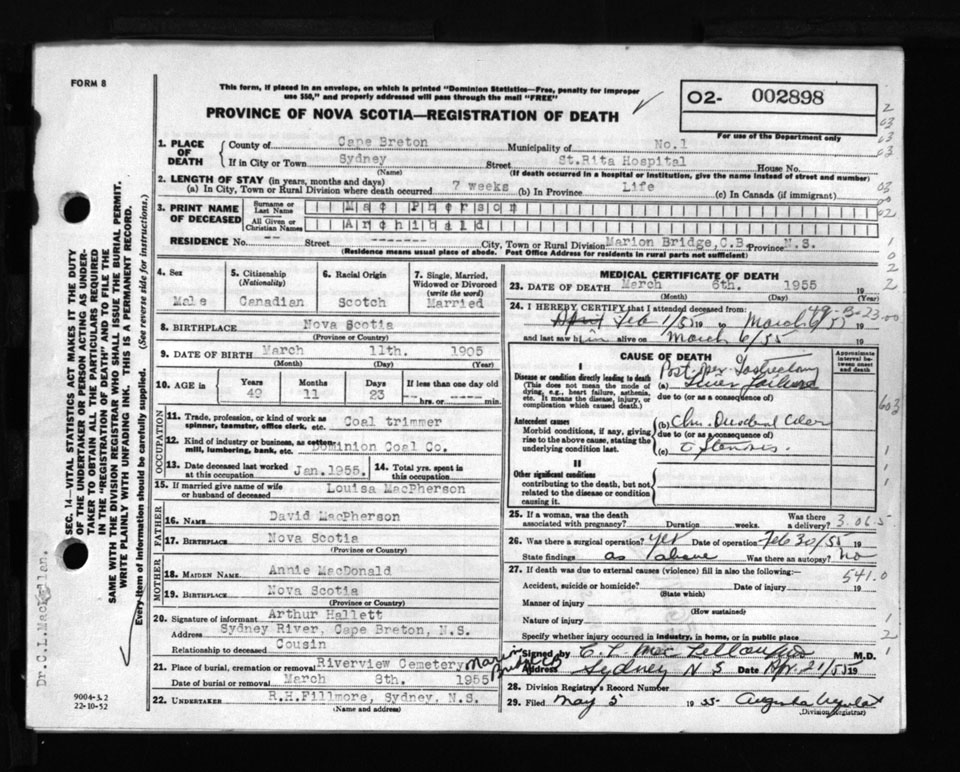 FORM 8
This form, if placed in an envelope, on which is printed "Dominion Statistics—Free, penalty for improper
use $50," and properly addressed will pass through the mail "FREE"
PROVINCE OF NOVA SCOTIA—REGISTRATION OF DEATH
02- 002898
For use of the Department only
1. PLACE OF DEATH
County of Cape Breton Municipality of No.1
If in City or Town Sydney Street St.Rita Hospital House No.
(Name) (If death occurred in a hospital or institution, give the name instead of street and number)
2. LENGTH OF STAY (in years, months and days)
(a) In City, Town or Rural Division where death occurred 7 weeks (b) in Province Life (c) In Canada (if immigrant)
3. PRINT NAME OF DECEASED
Surname or Last Name Mac Pherson
All Given or Christian Names Archibald
RESIDENCE No. -- Street ------- City, Town or Rural Division Marion Bridge,C.B. Province N.S.
(Residence means usual place of abode. Post Office Address for residents in rural parts not sufficient)
4. Sex
Male
5. Citizenship (Nationality)
Canadian
6. Racial Origin
Scotch
7. Single, Married, Widowed or Divorced (write the word)
Married
8. BIRTHPLACE Nova Scotia
(Province or Country)
9. DATE OF BIRTH March 11th. 1905
(Month) (Day) (Year)
10. AGE in Years Months Days If less than one day old
49 11 23 hrs. or min.
OCCUPATION
11. Trade, profession, or kind of work as
spinner, teamster, office clerk, etc. Coal trimmer
12. Kind of industry or business, as cotton-
mill, lumbering, bank, etc. Dominion Coal Co.
13. Date deceased last worked
at this occupation Jan.1955.
14. Total yrs. spent in
this occupation
15. If married give name of wife
or husband of deceased Louisa MacPherson
FATHER
16. NAME David MacPherson
17. BIRTHPLACE Nova Scotia
(Province or Country)
MOTHER
18. MAIDEN NAME Annie MacDonald
19. BIRTHPLACE Nova Scotia
(Province or Country)
20. Signature of informant Arthur Hallett
Address Sydney River, Cape Breton, N.S.
Relationship to deceased Cousin
21. Place of burial, cremation or removal Riverview Cemetery Marion Bridge CB
Date of burial or removal March 8th. 1955
22. UNDERTAKER R.H.Fillmore, Sydney, N.S.
(Name and address)
MEDICAL CERTIFICATE OF DEATH
23. DATE OF DEATH March 6th. 1955 19
(Month) (Day) (Year)
24. I HEREBY CERTIFY that I attended deceased from:
Feb 1/55 19 to March 6/55
and last saw him alive on March 6/55 19
CAUSE OF DEATH
Approximate interval between onset and death
I
Disease or condition directly leading to death
(This does not mean the mode of dying, e.g., heart failure, asthenia, etc. It means the disease, injury, or complication which caused death.)
Post-oper Gastrectomy
(a) Liver Failure
due to (or as a consequence of)
Antecedent causes
Morbid conditions, if any, giving rise to the above cause, stating the underlying condition last.
(b) Chr. Duodenal Ulcer
due to (or as a consequence of)
(c) c Stenosis.
II
Other significant conditions
contributing to the death, but not related to the disease or condition causing it.
25. If a woman, was the death
associated with pregnancy? Duration weeks. Was there a delivery?
26. Was there a surgical operation? yes Date of operation Feb 30/55 19
State findings as above Was there an autopsy? no
27. If death was due to external causes (violence) fill in also the following:
541.0
Accident, suicide or homicide? Date of injury 19
(State which)
Manner of injury
(How sustained)
Nature of injury
Specify whether injury occurred in industry, in home, or in public place
Signed by C. L. MacLellan M.D.
Address Sydney N S Date Apr. 21/55 19
28. Division Registrar's Record Number
29. Filed May 5 1955
(Division Registrar)
SEC. 14—VITAL STATISTICS ACT MAKES IT THE DUTY
OF THE UNDERTAKER OR PERSON ACTING AS UNDER-
TAKER TO OBTAIN ALL THE PARTICULARS REQUIRED
IN THE "REGISTRATION OF DEATH" AND TO FILE THE
SAME WITH THE DIVISION REGISTRAR WHO SHALL ISSUE THE BURIAL PERMIT.
WRITE PLAINLY WITH UNFADING INK. THIS IS A PERMANENT RECORD.
Every item of information should be carefully supplied. (See reverse side for instructions.)
Dr.C.L.MacLellan.
9004-3.2
22-10-52